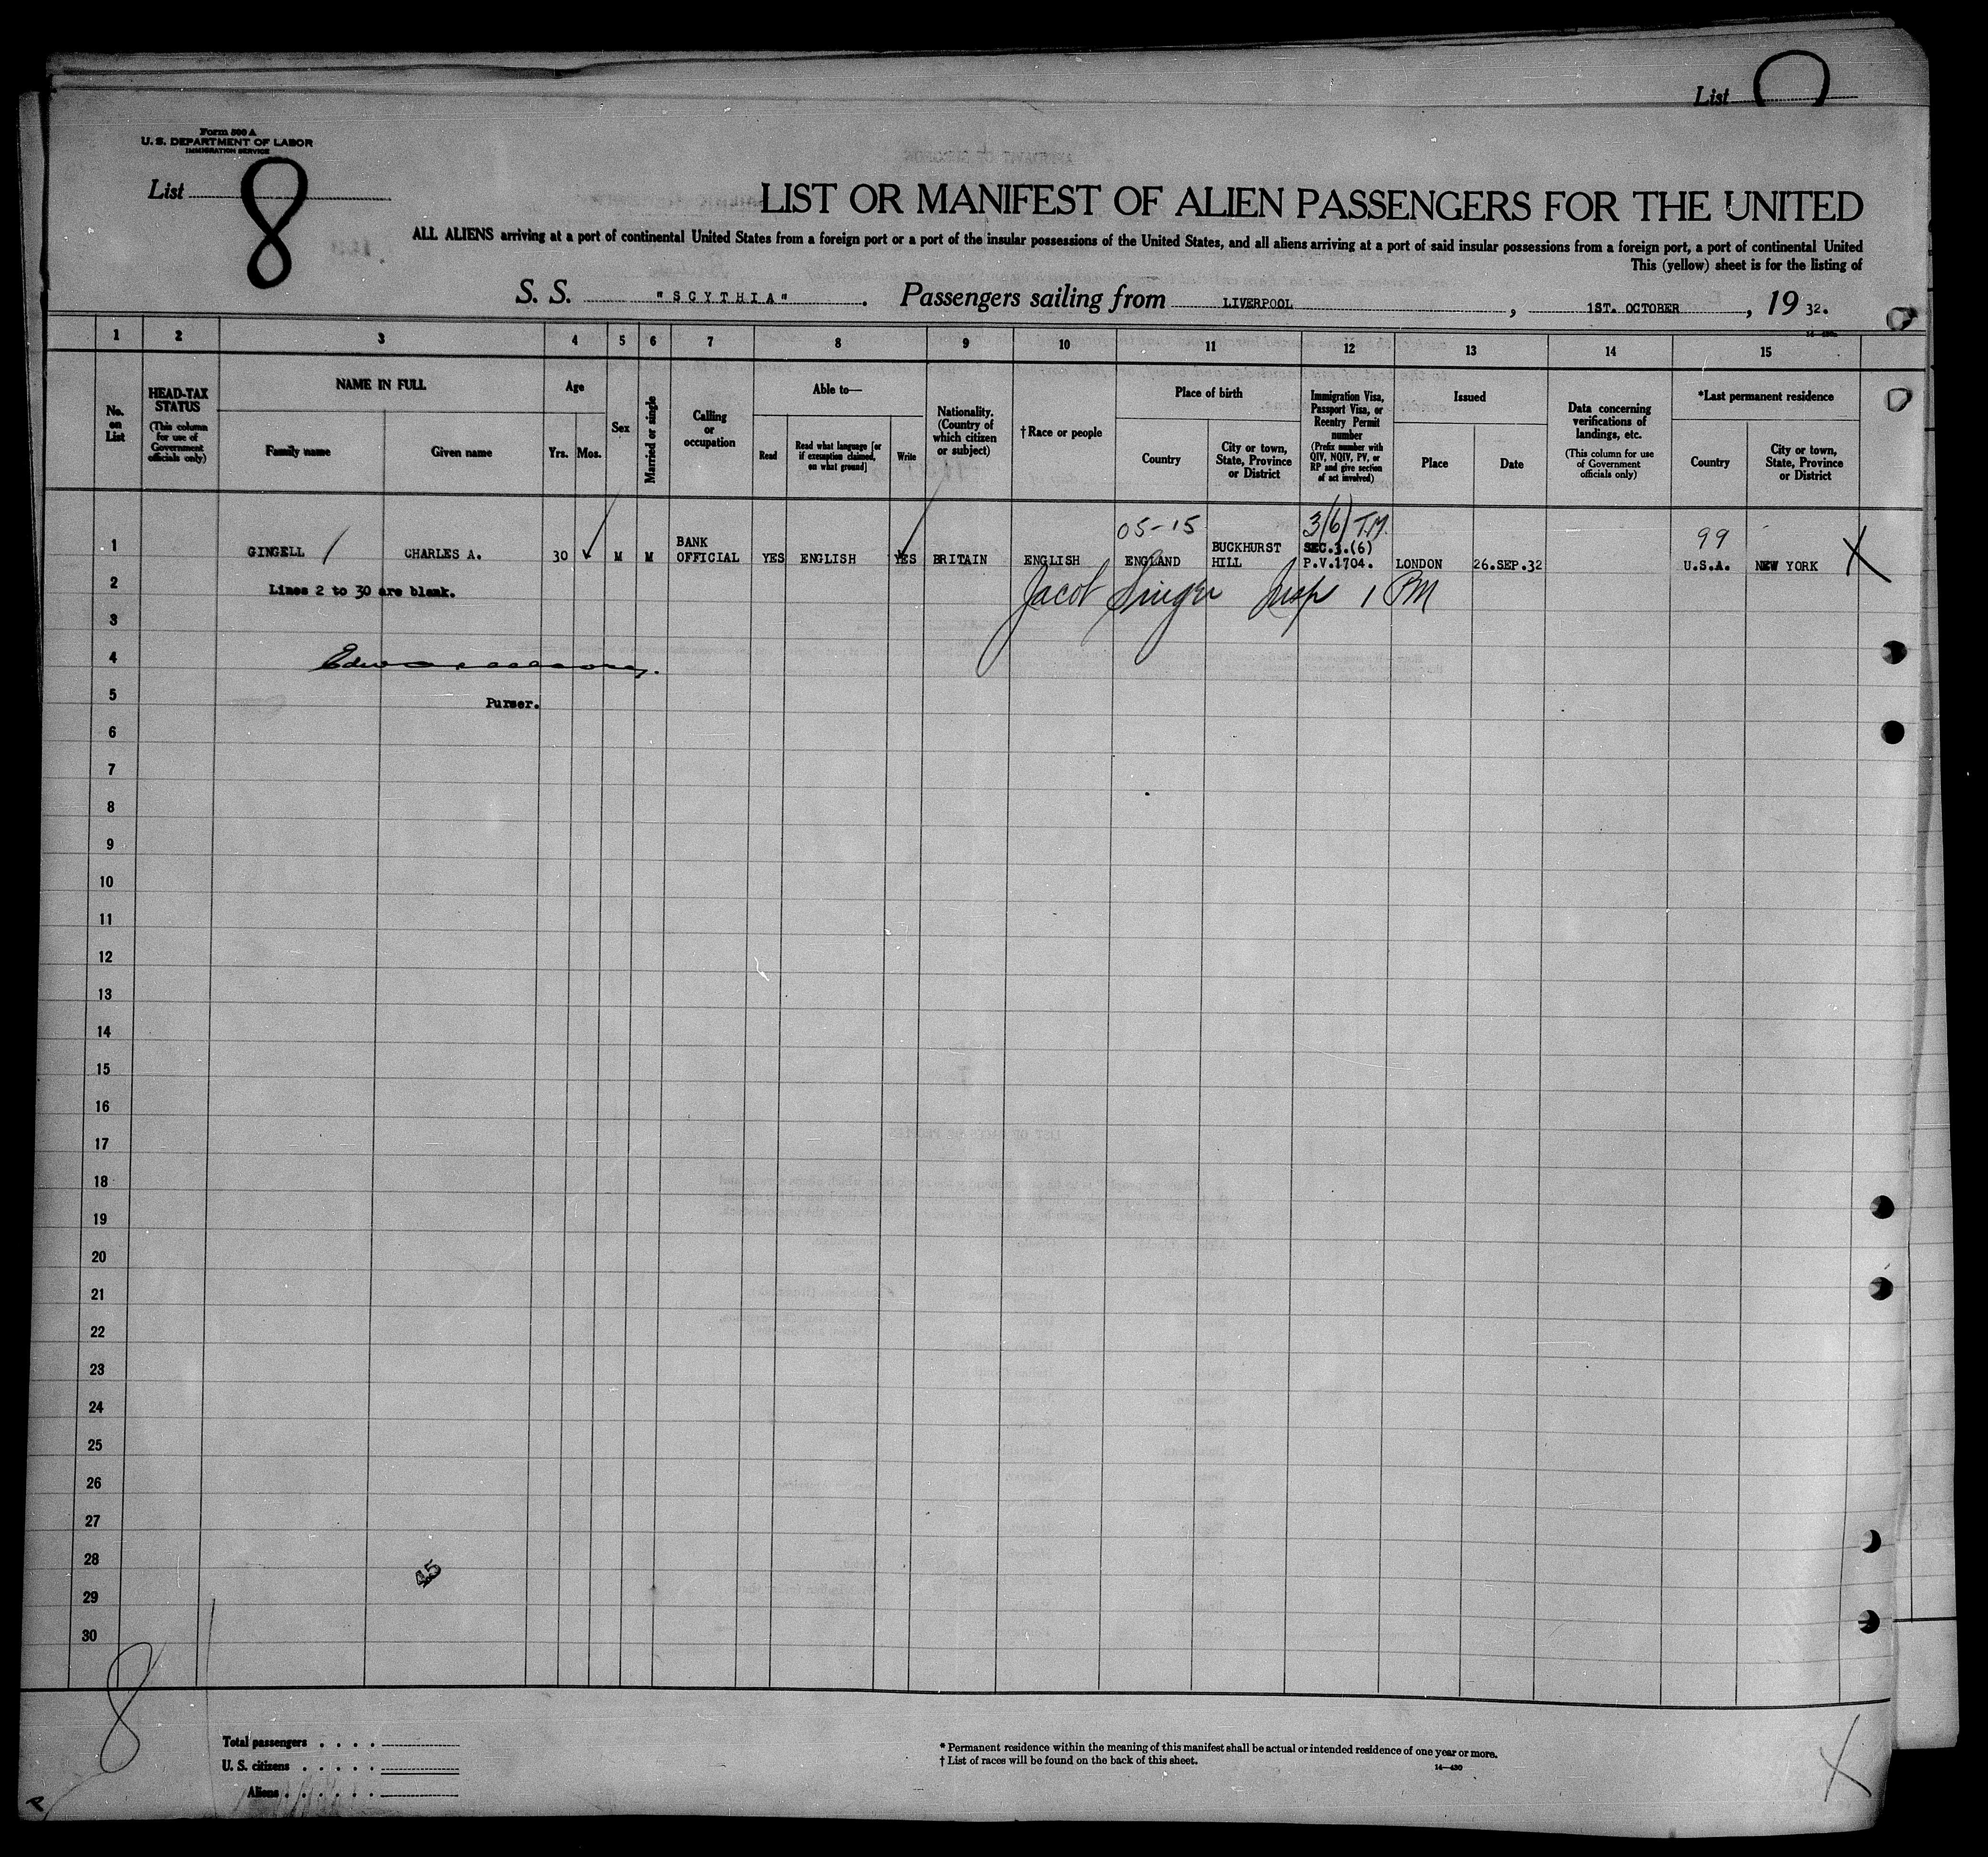 List
Form 500 A
U. S. DEPARTMENT OF LABOR
IMMIGRATION SERVICE
List 8
LIST OR MANIFEST OF ALIEN PASSENGERS FOR THE UNITED
ALL ALIENS arriving at a port of continental United States from a foreign port or a port of the insular possessions of the United States, and all aliens arriving at a port of said insular possessions from a foreign port, a port of continental United
This (yellow) sheet is for the listing of
S. S. "SCYTHIA". Passengers sailing from LIVERPOOL, 1ST. OCTOBER, 19 32.
1 2 3 4 5 6 7 8 9 10 11 12 13 14 15
No. on List
HEAD-TAX STATUS (This column for use of Government officials only)
NAME IN FULL
Family name Given name
Age
Yrs. Mos.
Sex
Married or single
Calling or occupation
Able to—
Read
Read what language [or if exemption claimed, on what ground]
Write
Nationality. (Country of which citizen or subject)
†Race or people
Place of birth
Country
City or town, State, Province or District
Immigration Visa, Passport Visa, or Reentry Permit number (Prefix number with QIV, NQIV, PV, or RP and give section of act involved)
Issued
Place Date
Data concerning verifications of landings, etc. (This column for use of Government officials only)
*Last permanent residence
Country
City or town, State, Province or District
05-15 3(6) T.M. 99
1 GINGELL CHARLES A. 30 M M BANK OFFICIAL YES ENGLISH YES BRITAIN ENGLISH ENGLAND BUCKHURST HILL SEC.3.(6) P.V.1704. LONDON 26.SEP.32 U.S.A. NEW YORK X
2 Lines 2 to 30 are blank. Jacob Singer Insp 1 PM
3
4
5 Purser.
6
7
8
9
10
11
12
13
14
15
16
17
18
19
20
21
22
23
24
25
26
27
28 45
29
30
8
Total passengers . . . .
U. S. citizens . . . . .
Aliens . . . . . .
* Permanent residence within the meaning of this manifest shall be actual or intended residence of one year or more.
† List of races will be found on the back of this sheet.
14—430
X